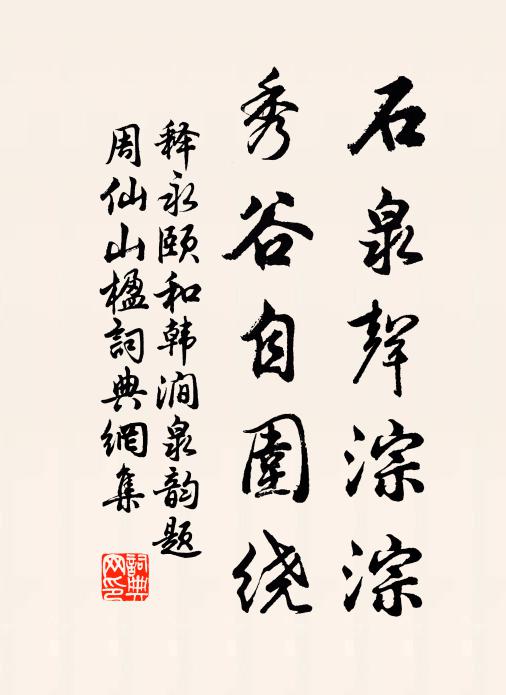 石泉聲淙淙
秀谷自圍绕
释永颐和韩涧泉韵题
周仙山楹詞典網集
詞典网印